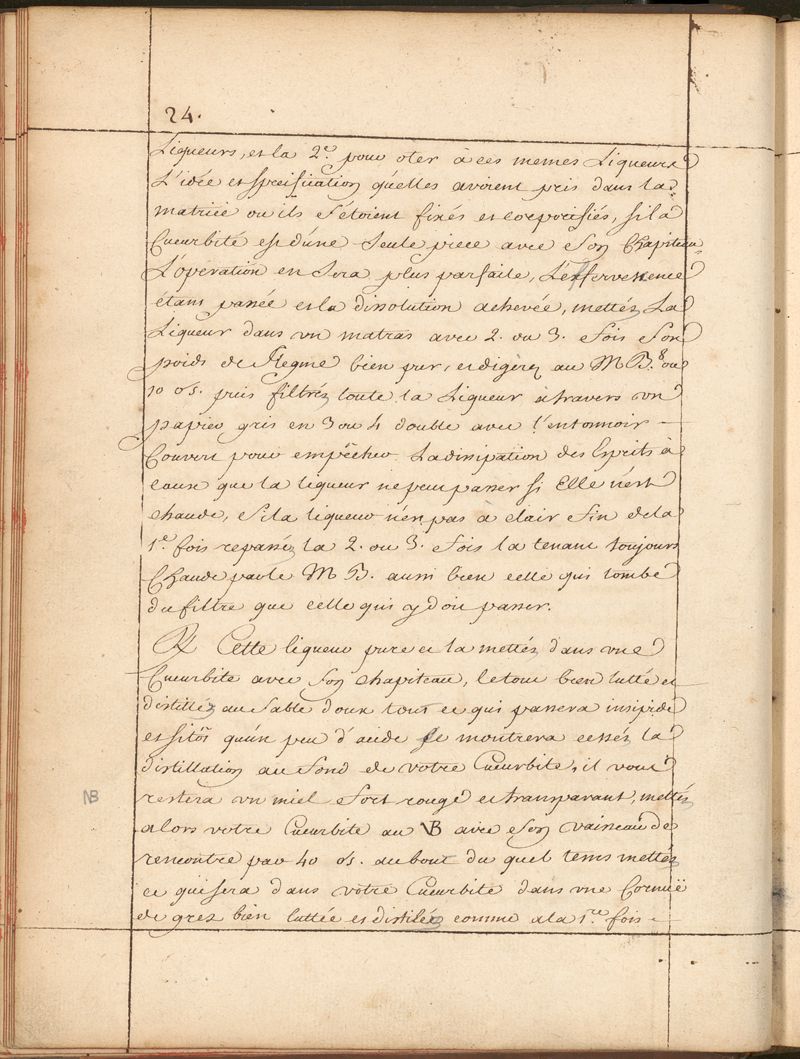 24.
Liqueurs, et la 2.e pour oter à ces memes Liqueurs
L'idée et Specification quelles avoient pris dans la
matrice ou ils S'étoient fixés et corporifiés, si la
Cucurbite est dúne Seule piece avec Son Chapiteau
L'opération en Sera plus parfaite, L'effervescence
étant passée et la dissolution achevée, mettés La
Liqueur dans un matras avec 2. ou 3. fois Son
poids de flegme bien pur, et digérez au M B. 8 ou
10 os. puis filtrés toute la Liqueur à travers un
papier gris en 3 ou 4 double avec l'entonnoir
Couvert pour empêcher La disipation des Esprits à
cause que la liqueur ne peut passer si Elle n'est
chaude, Si la liqueur n'est pas a clair fin de la
1.e fois repassés la 2. ou 3. fois la tenant toujours
Chaude par le M B. aussi bien celle qui tombe
du filtre que celle qui y doit passer.
Cette liqueur pure et la mettés dans une
Cucurbite avec Son chapiteau, le tout bien lutté et
distillés au Sable doux tout ce qui passera insipide
et sitôt quún peu d'acide se montrera cessés la
distillation au fond de votre Cucurbite, il vous
NB
restera un miel fort rouge et transparant, mettés
alors votre Cucurbite au VB avec Son vaisseau de
rencontre par 40 os. au bout du quel tems mettés
ce qui sera dans votre Cucurbite dans une Cornuë
de grez bien luttée et distilés comme a la 1.re fois